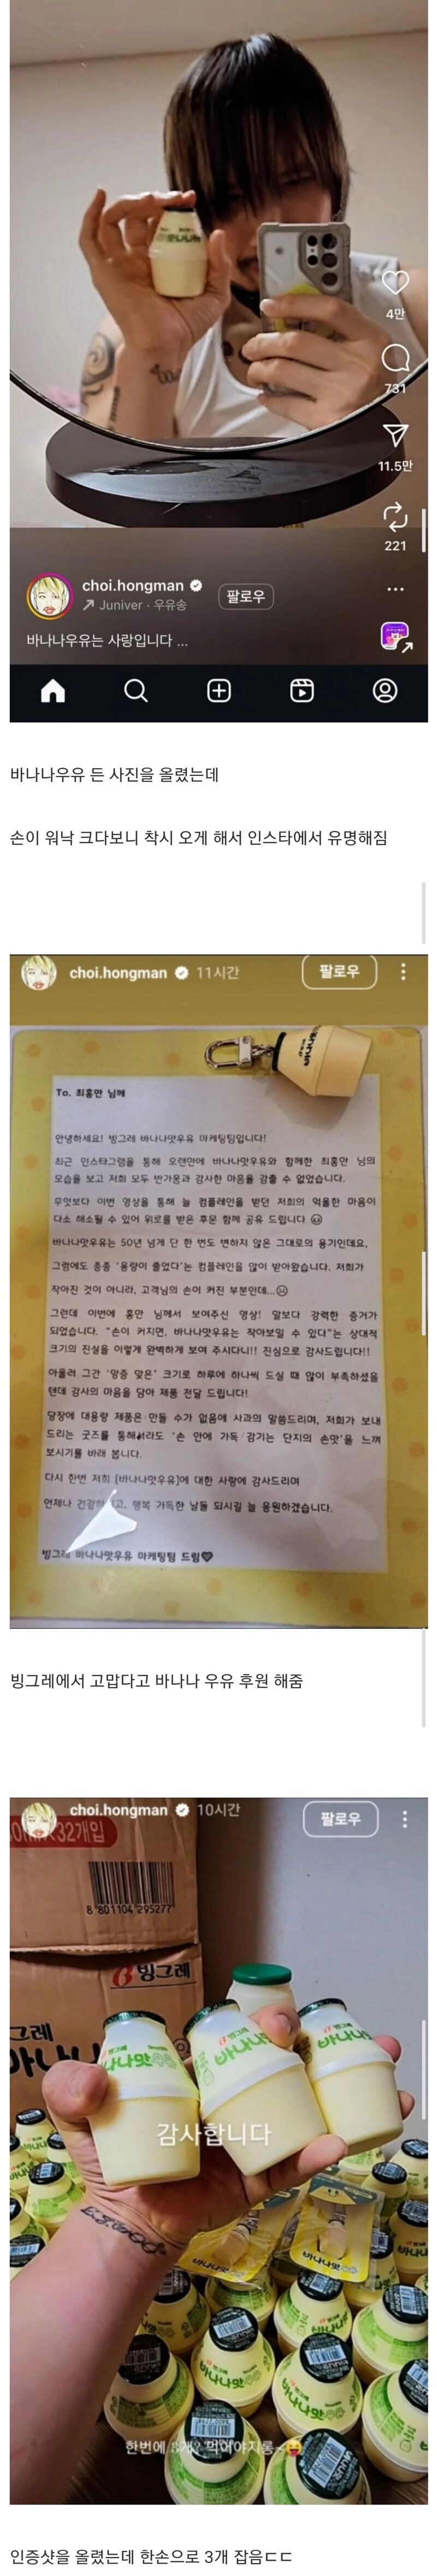 바나나맛
4만
731
11.5만
221
choi.hongman
Juniver · 우유송
팔로우
바나나우유는 사랑입니다 ...
바나나우유 든 사진을 올렸는데
손이 워낙 크다보니 착시 오게 해서 인스타에서 유명해짐
choi.hongman 11시간
팔로우
To. 최홍만 님께
안녕하세요! 빙그레 바나나맛우유 마케팅팀입니다!
최근 인스타그램을 통해 오랜만에 바나나맛우유와 함께한 최홍만 님의
모습을 보고 저희 모두 반가움과 감사한 마음을 감출 수 없었습니다.
무엇보다 이번 영상을 통해 늘 컴플레인을 받던 저희의 억울한 마음이
다소 해소될 수 있어 위로를 받은 후문 함께 공유 드립니다
바나나맛우유는 50년 넘게 단 한 번도 변하지 않은 그대로의 용기인데요,
그럼에도 종종 '용량이 줄었다'는 컴플레인을 많이 받아왔습니다. 저희가
작아진 것이 아니라, 고객님의 손이 커진 부분인데...☹
그런데 이번에 홍만 님께서 보여주신 영상! 말보다 강력한 증거가
되었습니다. "손이 커지면, 바나나맛우유는 작아보일 수 있다"는 상대적
크기의 진실을 이렇게 완벽하게 보여 주시다니!! 진심으로 감사드립니다!!
아울러 그간 '앙증 맞은' 크기로 하루에 하나씩 드실 때 많이 부족하셨을
텐데 감사의 마음을 담아 제품 전달 드립니다!
당장에 대용량 제품은 만들 수가 없음에 사과의 말씀드리며, 저희가 보내
드리는 굿즈를 통해서라도 '손 안에 가득 감기는 단지의 손맛'을 느껴
보시기를 바래 봅니다.
다시 한번 저희 [바나나맛우유]에 대한 사랑에 감사드리며
언제나 건강하고, 행복 가득한 날들 되시길 늘 응원하겠습니다.
빙그레 바나나맛우유 마케팅팀 드림
빙그레에서 고맙다고 바나나 우유 후원 해줌
choi.hongman 10시간
팔로우
32개입
8 801104 295277
빙그레
그레
바나나맛
빙그레
바나나맛
빙그레
감사합니다
바나나맛
바나나맛
한번에 8개? 먹어야지롱~
인증샷을 올렸는데 한손으로 3개 잡음ㄷㄷ